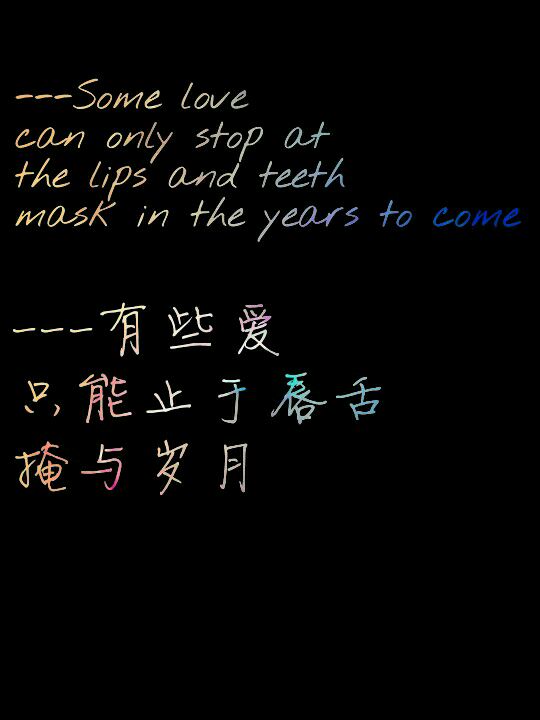 ---Some love
can only stop at
the lips and teeth
mask in the years to come
---有些爱
只能止于唇舌
掩与岁月